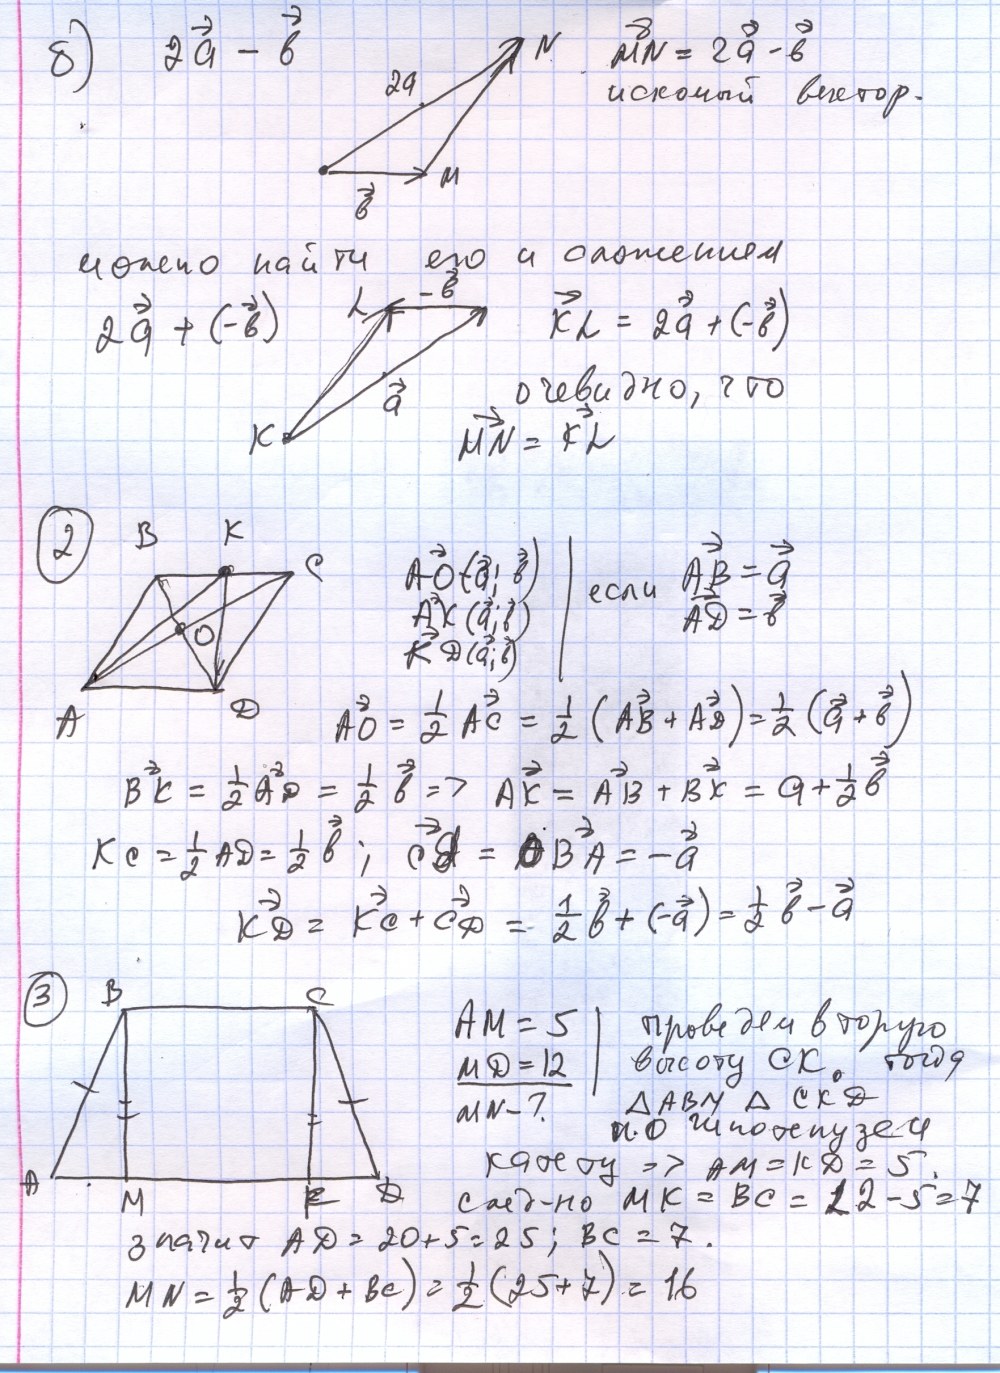 б) 2a⃗ − b⃗
N
2a
M
b⃗
MN⃗ = 2a⃗ − b⃗
искомый вектор.
можно найти его и сложением
2a⃗ + (−b⃗)
L −b⃗
a⃗
K
KL⃗ = 2a⃗ + (−b⃗)
очевидно, что
MN⃗ = KL⃗
2
B K C
O
A D
AO⃗ (a⃗; b⃗)
AK⃗ (a⃗; b⃗)
KD⃗ (a⃗; b⃗)
если AB⃗ = a⃗
AD⃗ = b⃗
AO⃗ = 1/2 AC⃗ = 1/2 (AB⃗ + AD⃗) = 1/2 (a⃗ + b⃗)
BK⃗ = 1/2 AD⃗ = 1/2 b⃗ => AK⃗ = AB⃗ + BK⃗ = a + 1/2 b⃗
KC = 1/2 AD = 1/2 b⃗ ; CD⃗ = BA⃗ = −a⃗
KD⃗ = KC⃗ + CD⃗ = 1/2 b⃗ + (−a⃗) = 1/2 b⃗ − a⃗
3
B C
A M K D
AM = 5
MD = 12
MN − ?
проведем вторую
высоту CK. тогда
△ ABM △ CKD
п.о гипотенузе и
катету => AM = KD = 5.
след-но MK = BC = 12 − 5 = 7
значит AD = 20 + 5 = 25; BC = 7.
MN = 1/2 (AD + BC) = 1/2 (25 + 7) = 16